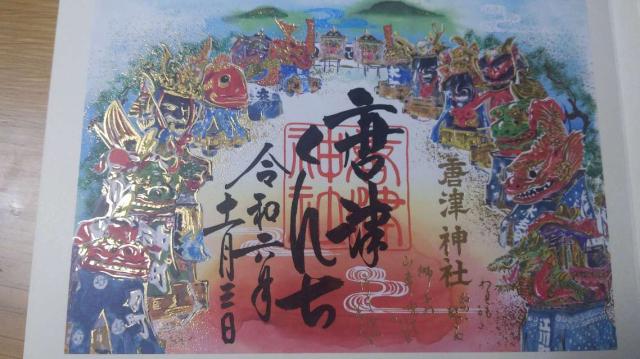 唐津神社
唐津
くんち
令和六年
十一月三日
唐津神社